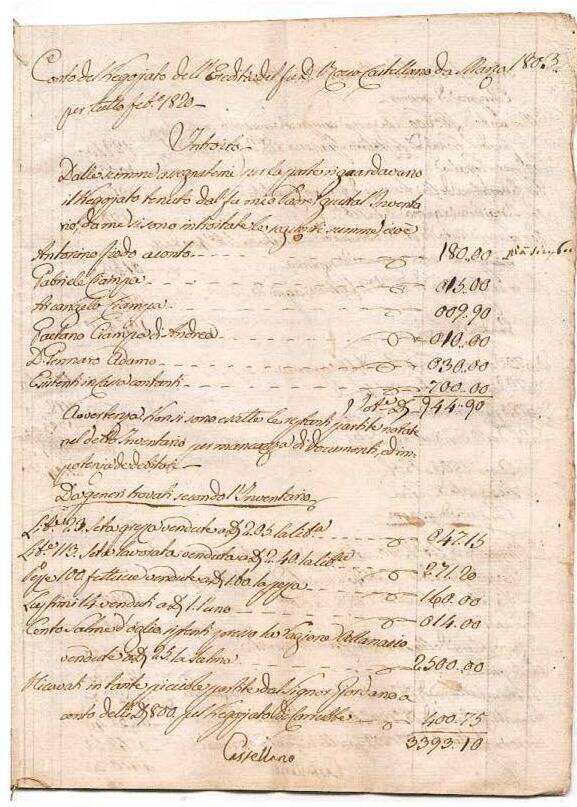 Conto del Negoziato dell'Eredità del fu D. Rocco Castellano da Marzo 1803.
per tutto feb.º 1820
Introito
Dalle somme assegnateme su la parte riguardavano
il Negoziato tenuto dal fu mio Padre, giusta l'Inventa
rio, da me si sono introitate le seguenti summe cioè
Antonino a conto 180.00
Gabriele Ciampa 015.00
Arcangelo Ciampa 009.90
Gaetano Ciampa di Andrea 010.00
D. Gennaro Adamo 030.00
Esistenti in cassa contanti 700.00
944.90
Avvertenza. Non si sono esatte le restanti partite notate
nel detto Inventario per mancanza di documenti, ed im
potenza de debitori
Da generi trovati secondo l'Inventario
23 Seta greza vendute a 2.05 la
113 Seta lavorata vendute a 2.40 la 271.20
Peze 100 vendute a 1.60 la peza 160.00
14 venduti a 1 l'uno 014.00
Cento Salme d'oglio, presso
vendute a 25 la Salma 2500.00
Ricavati in tante picciole partite dal Signor Giordano a
conto delli 800. sul Negoziato di 400.75
3393.10
Castellano